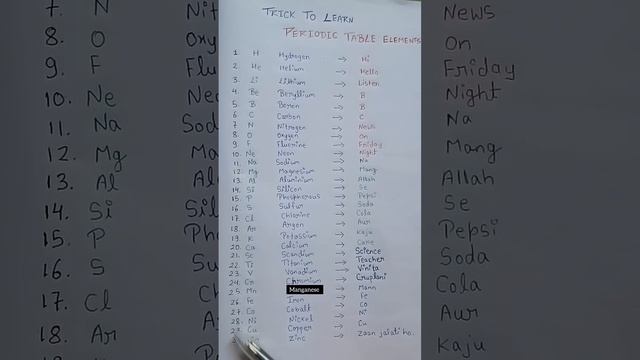 TRICK TO LEARN
PERIODIC TABLE ELEMENTS
1. H Hydrogen → Hi
2. He Helium → Hello
3. Li Lithium → Listen
4. Be Beryllium → B
5. B Boron → B
6. C Carbon → C
7. N Nitrogen → News
8. O Oxygen → On
9. F Fluorine → Friday
10. Ne Neon → Night
11. Na Sodium → Na
12. Mg Magnesium → Mang
13. Al Aluminium → Allah
14. Si Silicon → Se
15. P Phosphorous → Pepsi
16. S Sulfur → Soda
17. Cl Chlorine → Cola
18. Ar Argon → Aur
19. K Potassium → Kaju
20. Ca Calcium → Cake
21. Sc Scandium → Science
22. Ti Titanium → Teacher
23. V Vanadium → Vinita
24. Cr Chromium → Cruplani
25. Mn Manganese → Mann
26. Fe Iron → Fe
27. Co Cobalt → Co
28. Ni Nickel → Ni
29. Cu Copper → Cu
Zinc → Zaan jalati ho.
7. N Nit
8. O Oxy
9. F Flu
10. Ne Neo
11. Na Sod
12. Mg Ma
13. Al Al
14. Si Sil
15. P Ph
16. S S
17. Cl
18. Ar
News
On
Friday
Night
Na
Mang
Allah
Se
Pepsi
Soda
Cola
Aur
Kaju